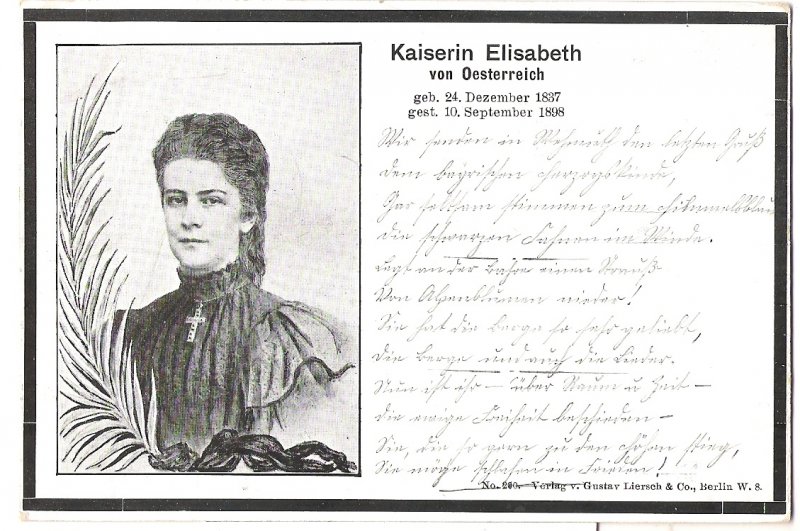 Kaiserin Elisabeth
von Oesterreich
geb. 24. Dezember 1837
gest. 10. September 1898
Wir senden in Wehmuth den letzten Gruß
dem bayrischen Herzogskinde,
Gar seltsam stimmen zum Himmelsblau
die schwarzen Fahnen im Winde.
Legt an der Bahre einen Strauß
Von Alpenblumen nieder!
Sie hat die Berge so sehr geliebt,
Die Berge und auch die Lieder.
Nun ist ihr – über Raum u Zeit –
die ewige Freiheit beschieden –
Sie, die so gern zu den Höhen stieg,
Sie möge schlafen in Frieden!
No. 260. Verlag v. Gustav Liersch & Co., Berlin W. 8.